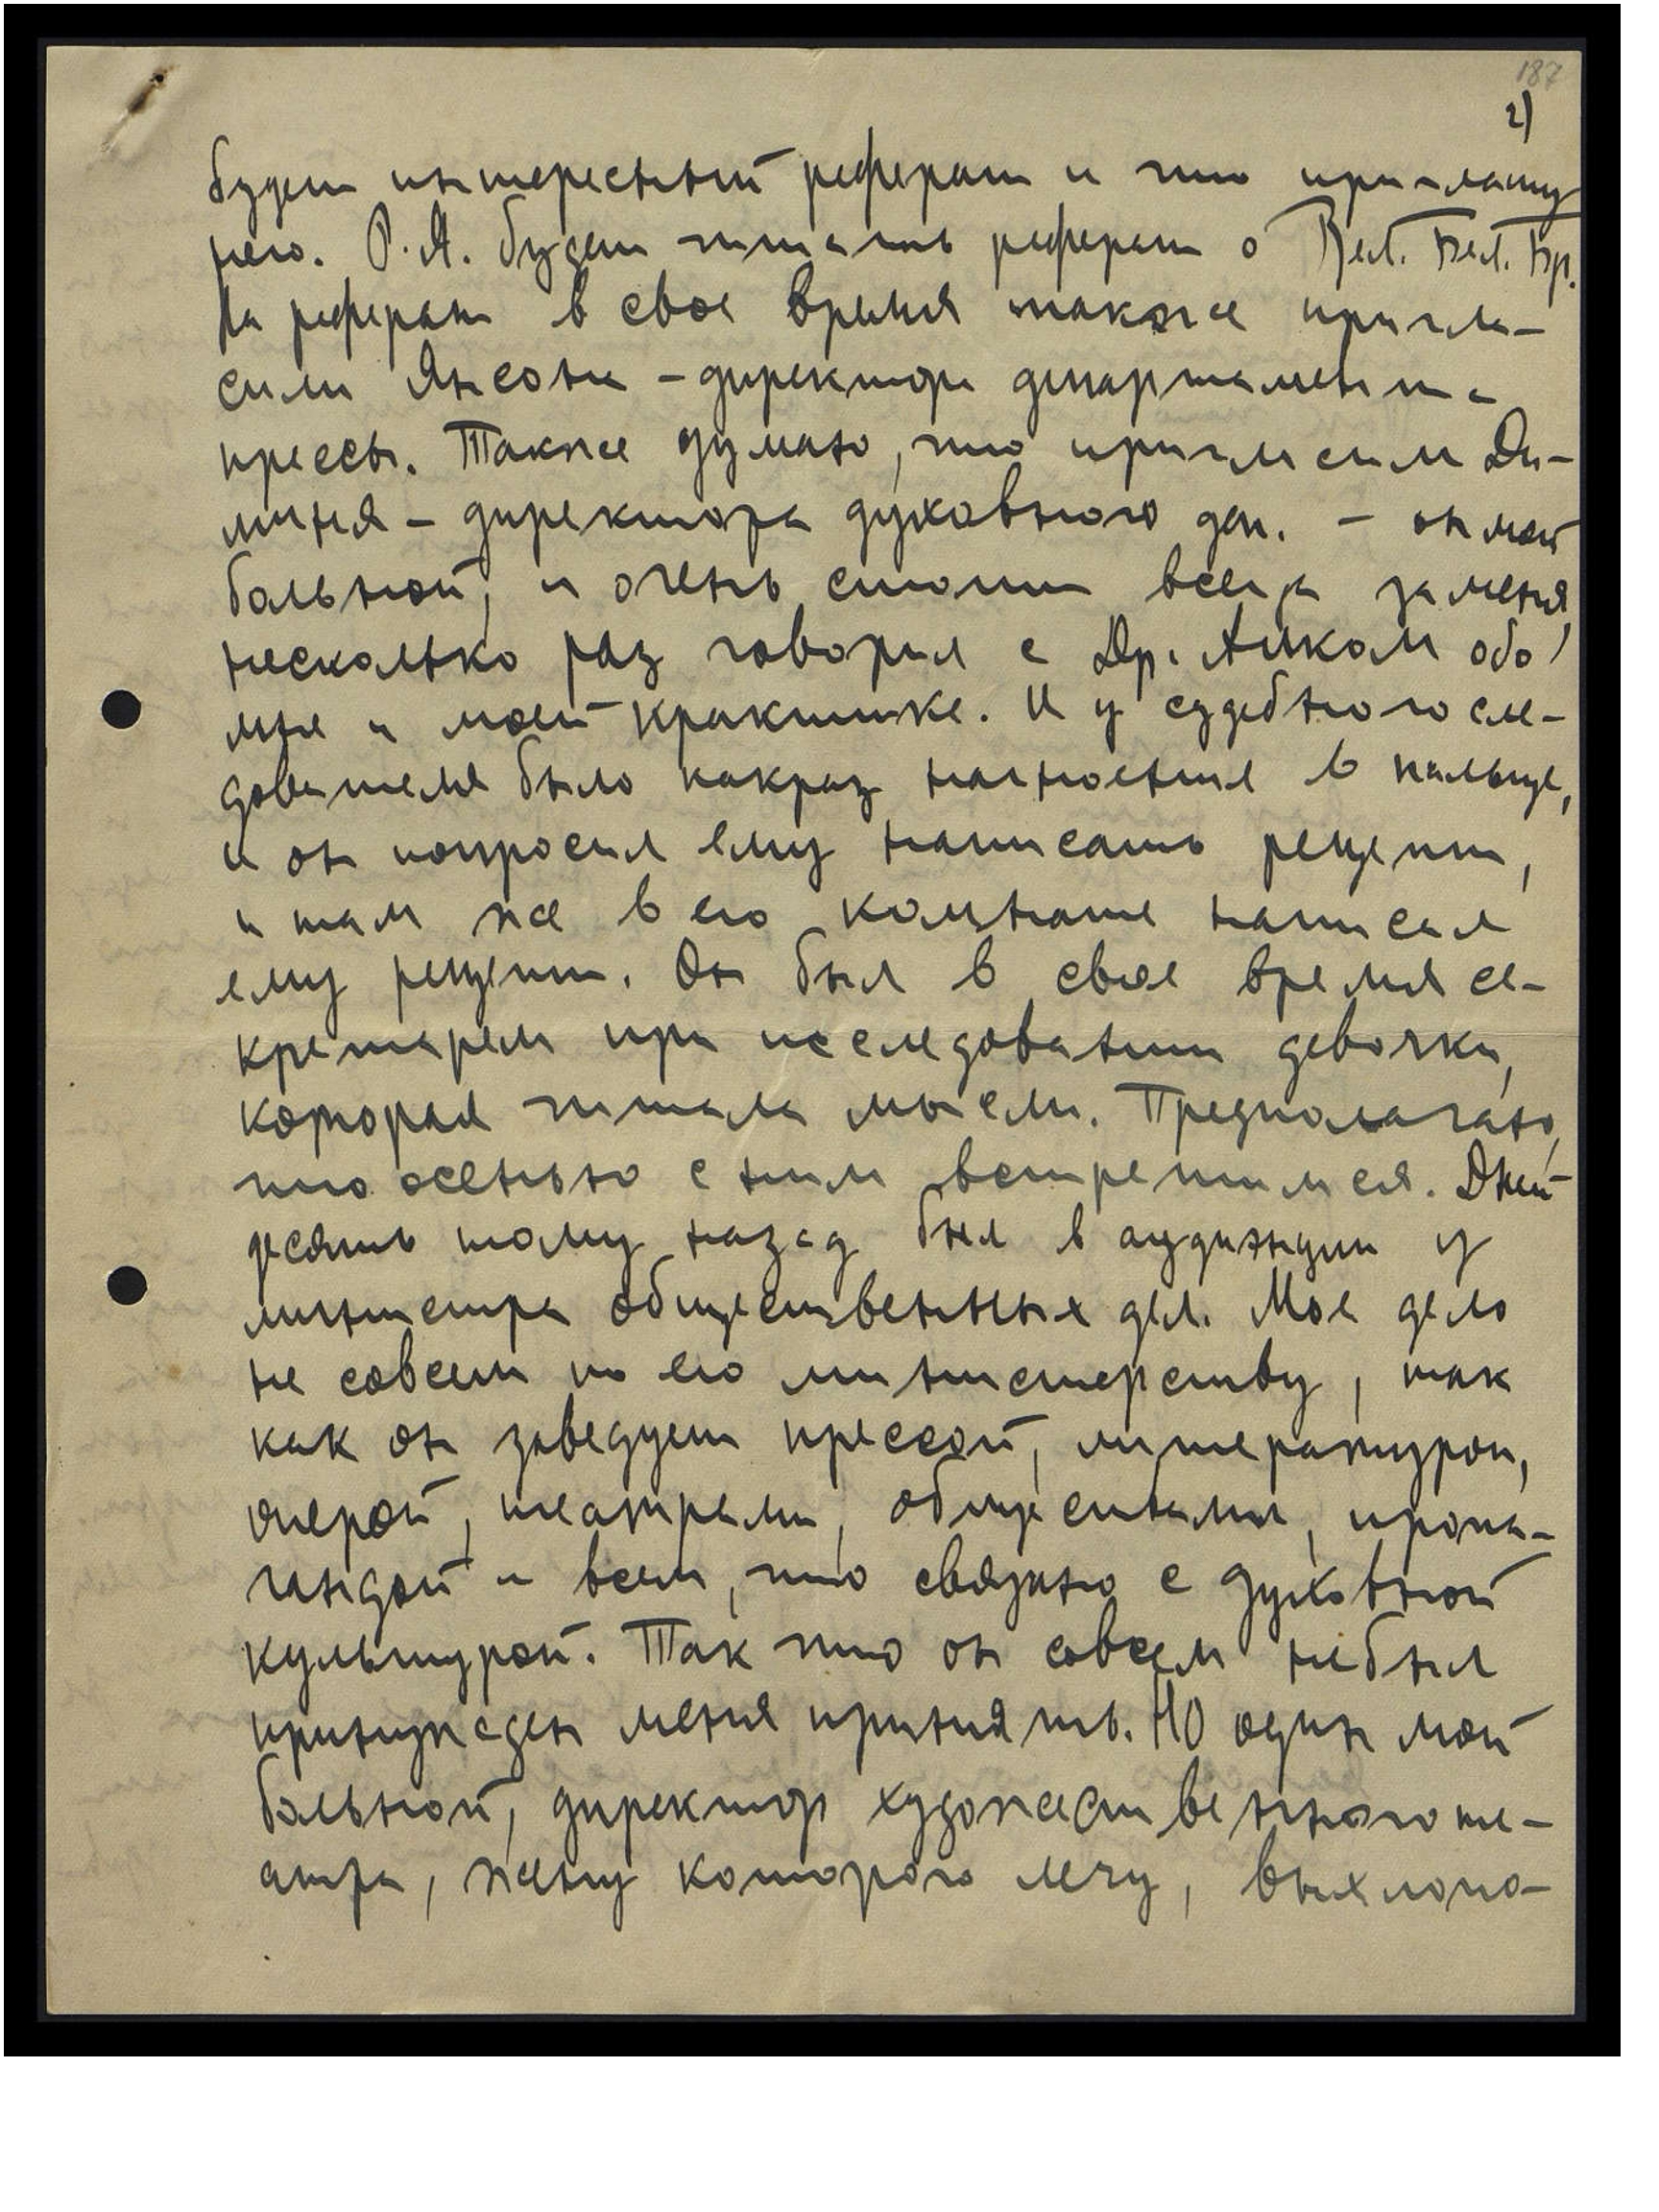 187
2)
будет интересный реферат и что приглашу
него. Р.Я. будет читать реферат о Вел. Бел. Бр.
На реферат в свое время также пригла-
сили Янсона - директора департамента
прессы. Также думаю, что пригласим Ди-
миня - директора духовного деп. - он мой
больной, и очень стоит всегда за меня,
несколько раз говорил с Др. Алком обо
мне и моей практике. И у судебного сле-
дователя было какраз нагноение в пальце,
и он попросил ему написать рецепт,
и там же в его комнате написал
ему рецепт. Он был в свое время се-
кретарем при исследовании девочки,
которая читала мысли. Предполагаю,
что осенью с ним встретимся. Дней
десять тому назад был в аудиэнции у
министра общественных дел. Мое дело
не совсем по его министерству, так
как он заведует прессой, литературой,
оперой, театрами, обществами, пропа-
гандой и всем, что связано с духовной
культурой. Так что он совсем небыл
принужден меня принять. Но один мой
больной, директор художественного те-
атра, жену которого лечу, выхлопо-